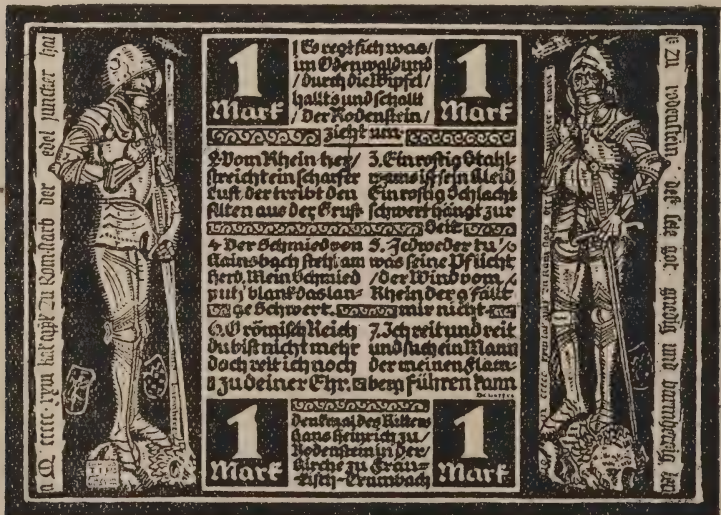 a M cccc · zu Rom starb der edel juncker han
1
Mark
1 Es regt sich was/
im Odenwald und
/ durch die Wipfel/
hallts und schallt
/ der Rodenstein/
zieht um
1
Mark
2. Vom Rhein her/
streicht ein scharfer
Luft, der treibt den
Alten aus der Gruft
3. Ein rostig Stahl-
wams ist sein Kleid
Ein rostig Schlacht
schwert hängt zur
Seit
4 Der Schmied von
Kainsbach steht am
Herd. Mein Schmied
putz' blank das lan-
ge Schwert.
5. Jedweder tu/
was seine Pflicht
/ der Wind vom/
Rhein der gfällt
mir nicht
6. O römisch Reich
du bist nicht mehr
doch reit ich noch
zu deiner Ehr.
7. Ich reit und reit
und such ein Mann
der meinen Flam-
berg führen kann
1
Mark
Denkmal des Ritters
Hans Heinrich zu/
Rodenstein in der
Kirche zu Frän-
kisch-Crumbach
1
Mark
zu rodenstein · got gnedig und barmherzig sei